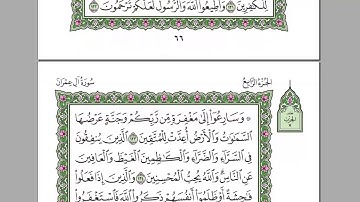 لِلْكَٰفِرِينَ ١٣١ وَأَطِيعُوا۟ ٱللَّهَ وَٱلرَّسُولَ لَعَلَّكُمْ تُرْحَمُونَ ١٣٢
٦٦
الجُزْءُ الرَّابِعُ سُورَةُ آلِ عِمْرَانَ
۞ وَسَارِعُوٓا۟ إِلَىٰ مَغْفِرَةٍ مِّن رَّبِّكُمْ وَجَنَّةٍ عَرْضُهَا
ٱلسَّمَٰوَٰتُ وَٱلْأَرْضُ أُعِدَّتْ لِلْمُتَّقِينَ ١٣٣ ٱلَّذِينَ يُنفِقُونَ
فِى ٱلسَّرَّآءِ وَٱلضَّرَّآءِ وَٱلْكَٰظِمِينَ ٱلْغَيْظَ وَٱلْعَافِينَ
عَنِ ٱلنَّاسِ وَٱللَّهُ يُحِبُّ ٱلْمُحْسِنِينَ ١٣٤ وَٱلَّذِينَ إِذَا فَعَلُوا۟
فَٰحِشَةً أَوْ ظَلَمُوٓا۟ أَنفُسَهُمْ ذَكَرُوا۟ ٱللَّهَ فَٱسْتَغْفَرُوا۟